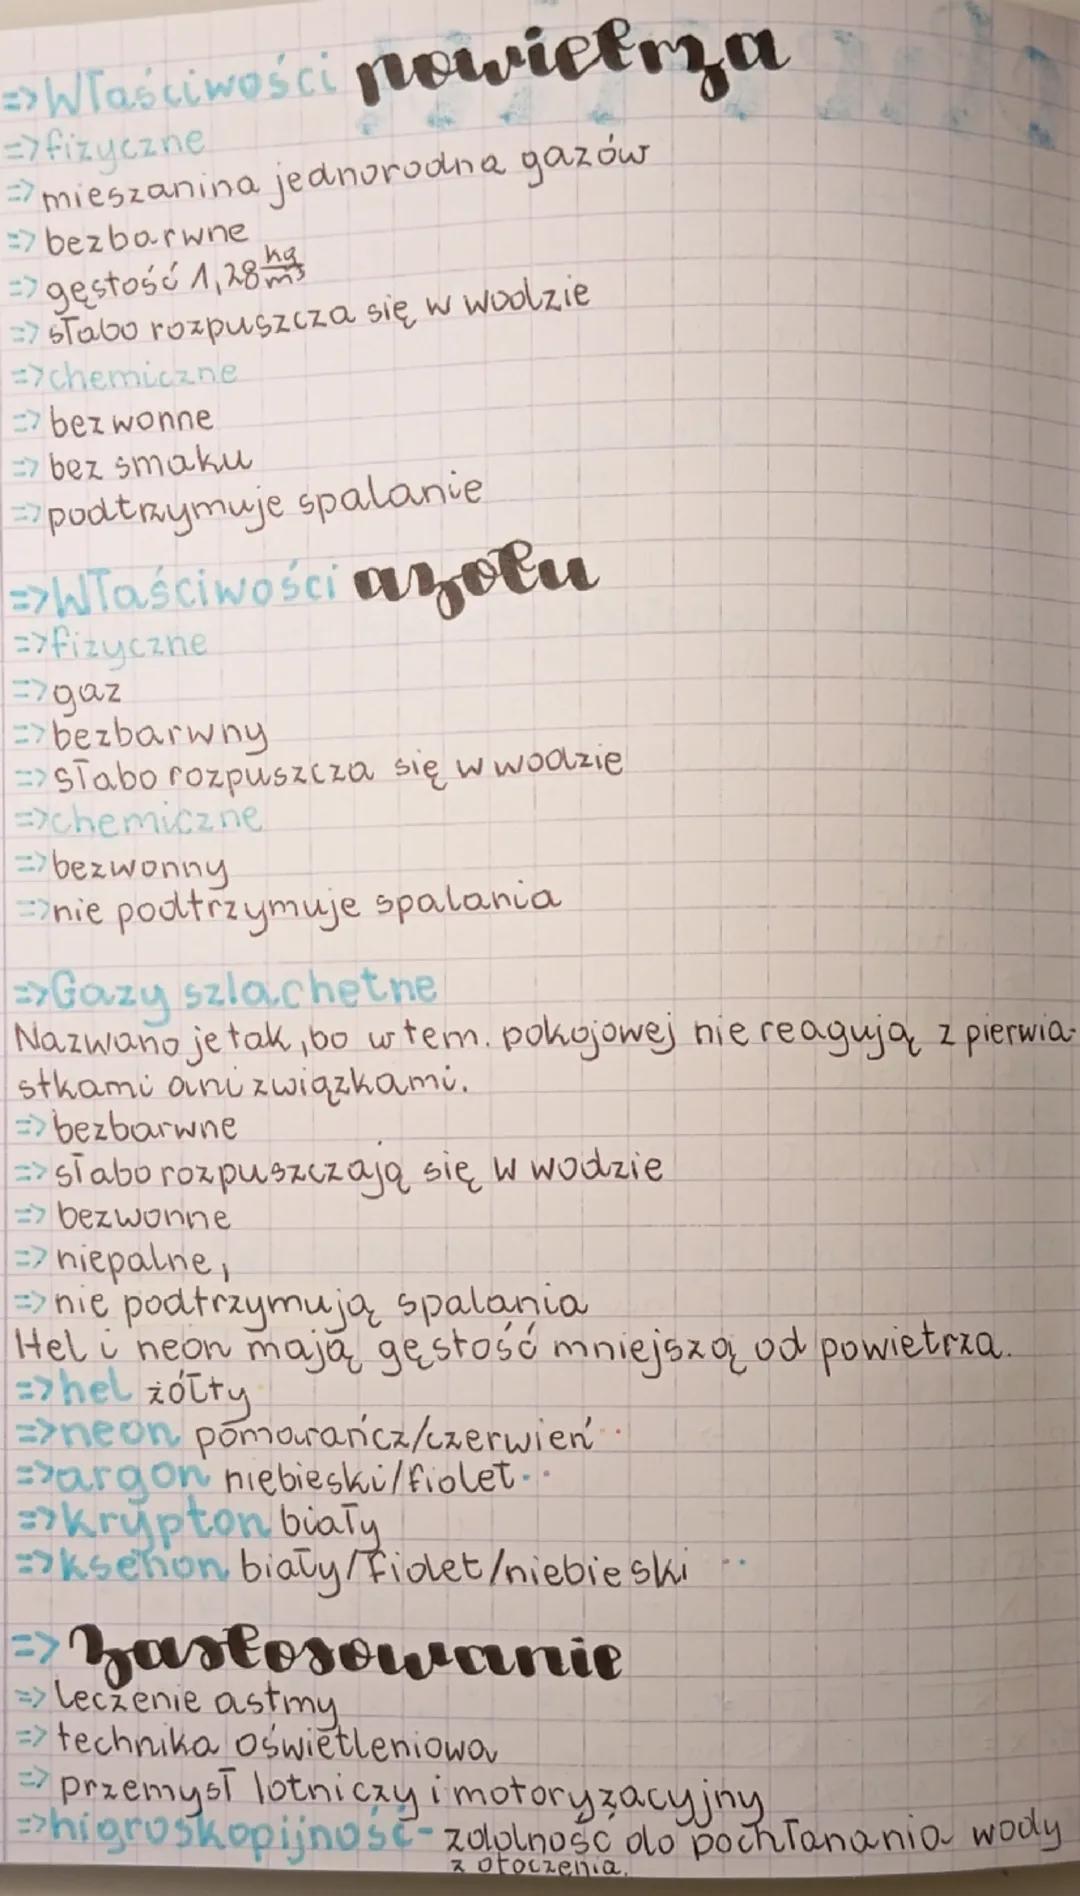 => Właściwości powietrza
=> fizyczne
=> mieszanina jednorodna gazów
=> bezbarwne
=> gęstość 1,28 kg/m³
=> słabo rozpuszcza się w wodzie
=> chemiczne
=> bezwonne
=> bez smaku
=> podtrzymuje spalanie
=> Właściwości azotu
=> fizyczne
=> gaz
=> bezbarwny
=> słabo rozpuszcza się w wodzie
=> chemiczne
=> bezwonny
=> nie podtrzymuje spalania
=> Gazy szlachetne
Nazwano je tak, bo w tem. pokojowej nie reagują z pierwia-
stkami ani związkami.
=> bezbarwne
=> słabo rozpuszczają się w wodzie
=> bezwonne
=> niepalne,
=> nie podtrzymują spalania
Hel i neon mają gęstość mniejszą od powietrza.
=> hel żółty
=> neon pomarańcz/czerwień
=> argon niebieski/fiolet
=> krypton biały
=> ksenon biały/fiolet/niebieski
=> Zastosowanie
=> leczenie astmy
=> technika oświetleniowa
=> przemysł lotniczy i motoryzacyjny
=> higroskopijność - zdolność do pochłanania wody
z otoczenia.